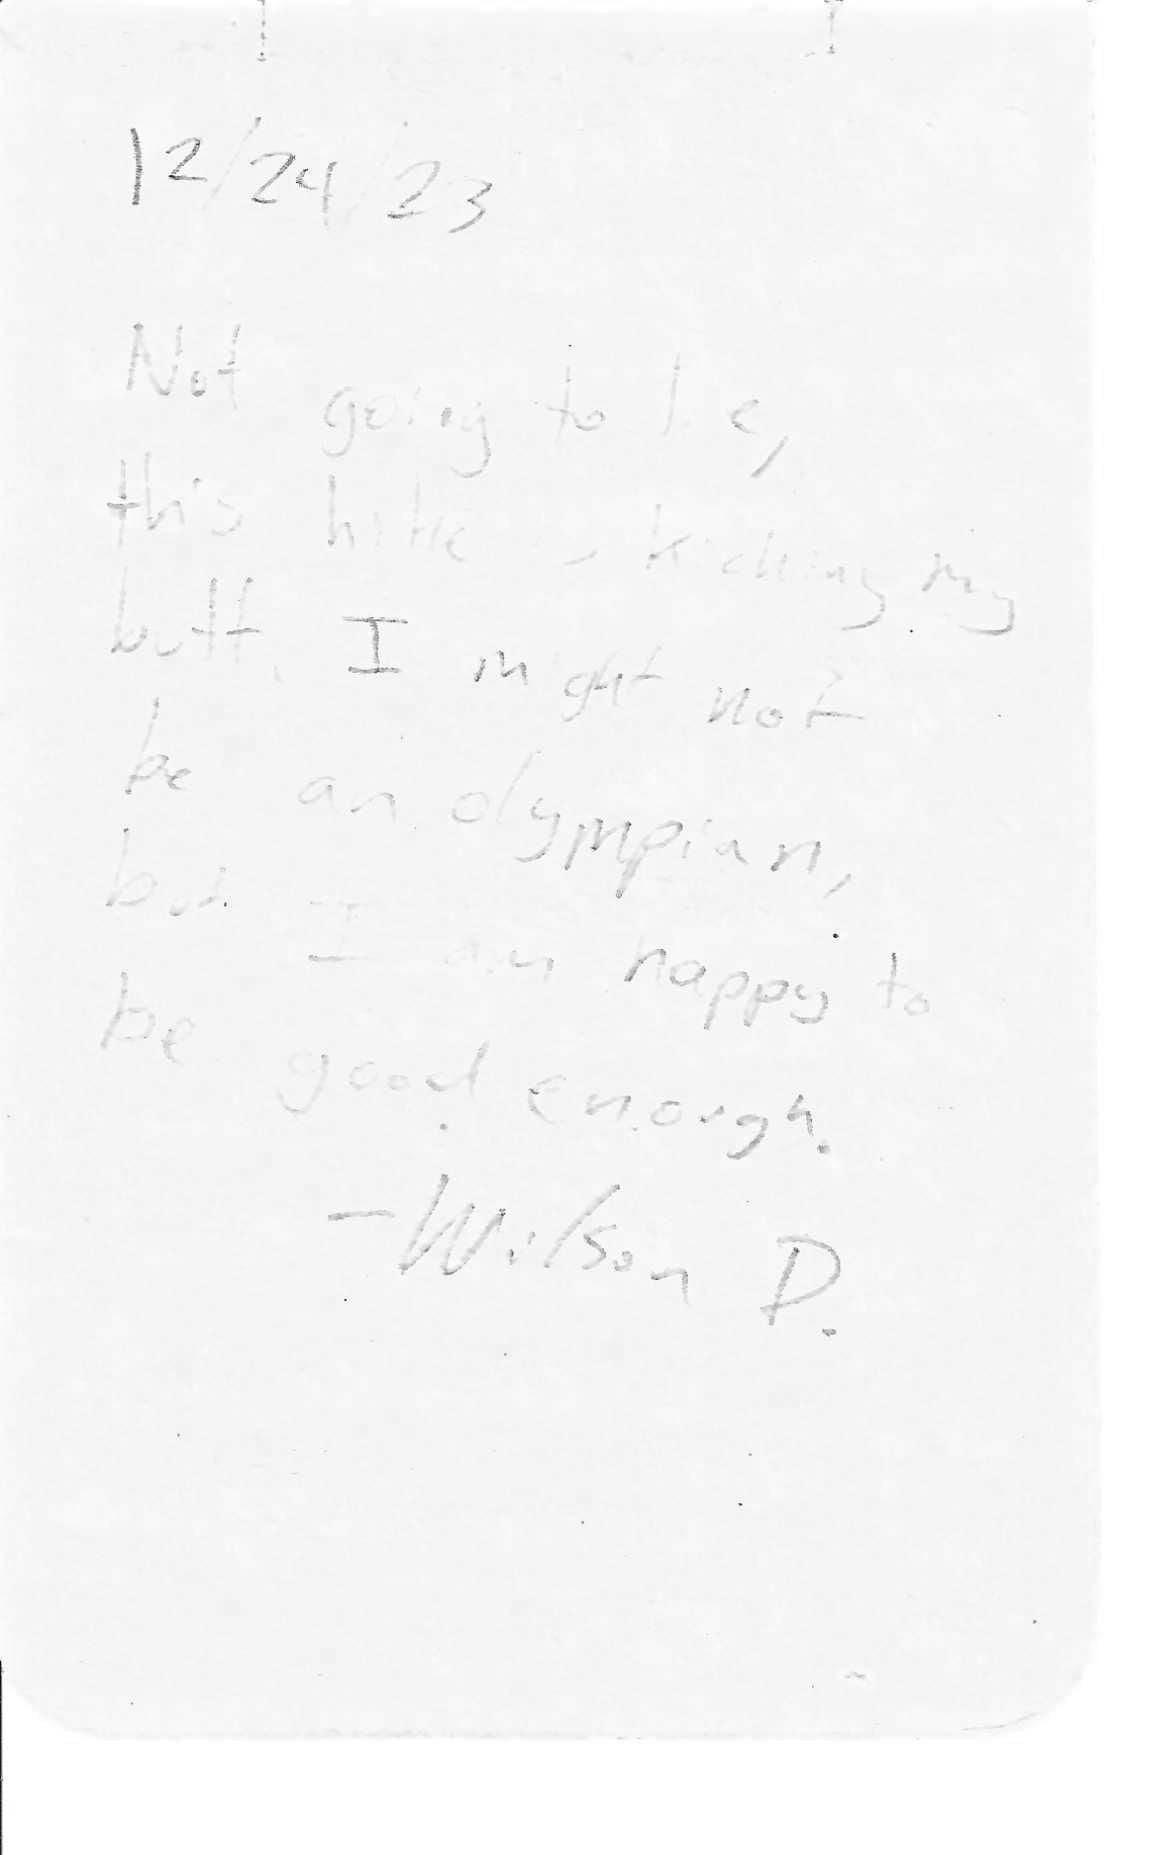 12/24/23
Not going to lie,
this hike is kicking my
butt. I might not
be an olympian,
but I am happy to
be good enough.
-Wilson D.